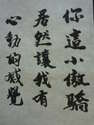 你這小傲驕
居然讓我有
心動的感覺